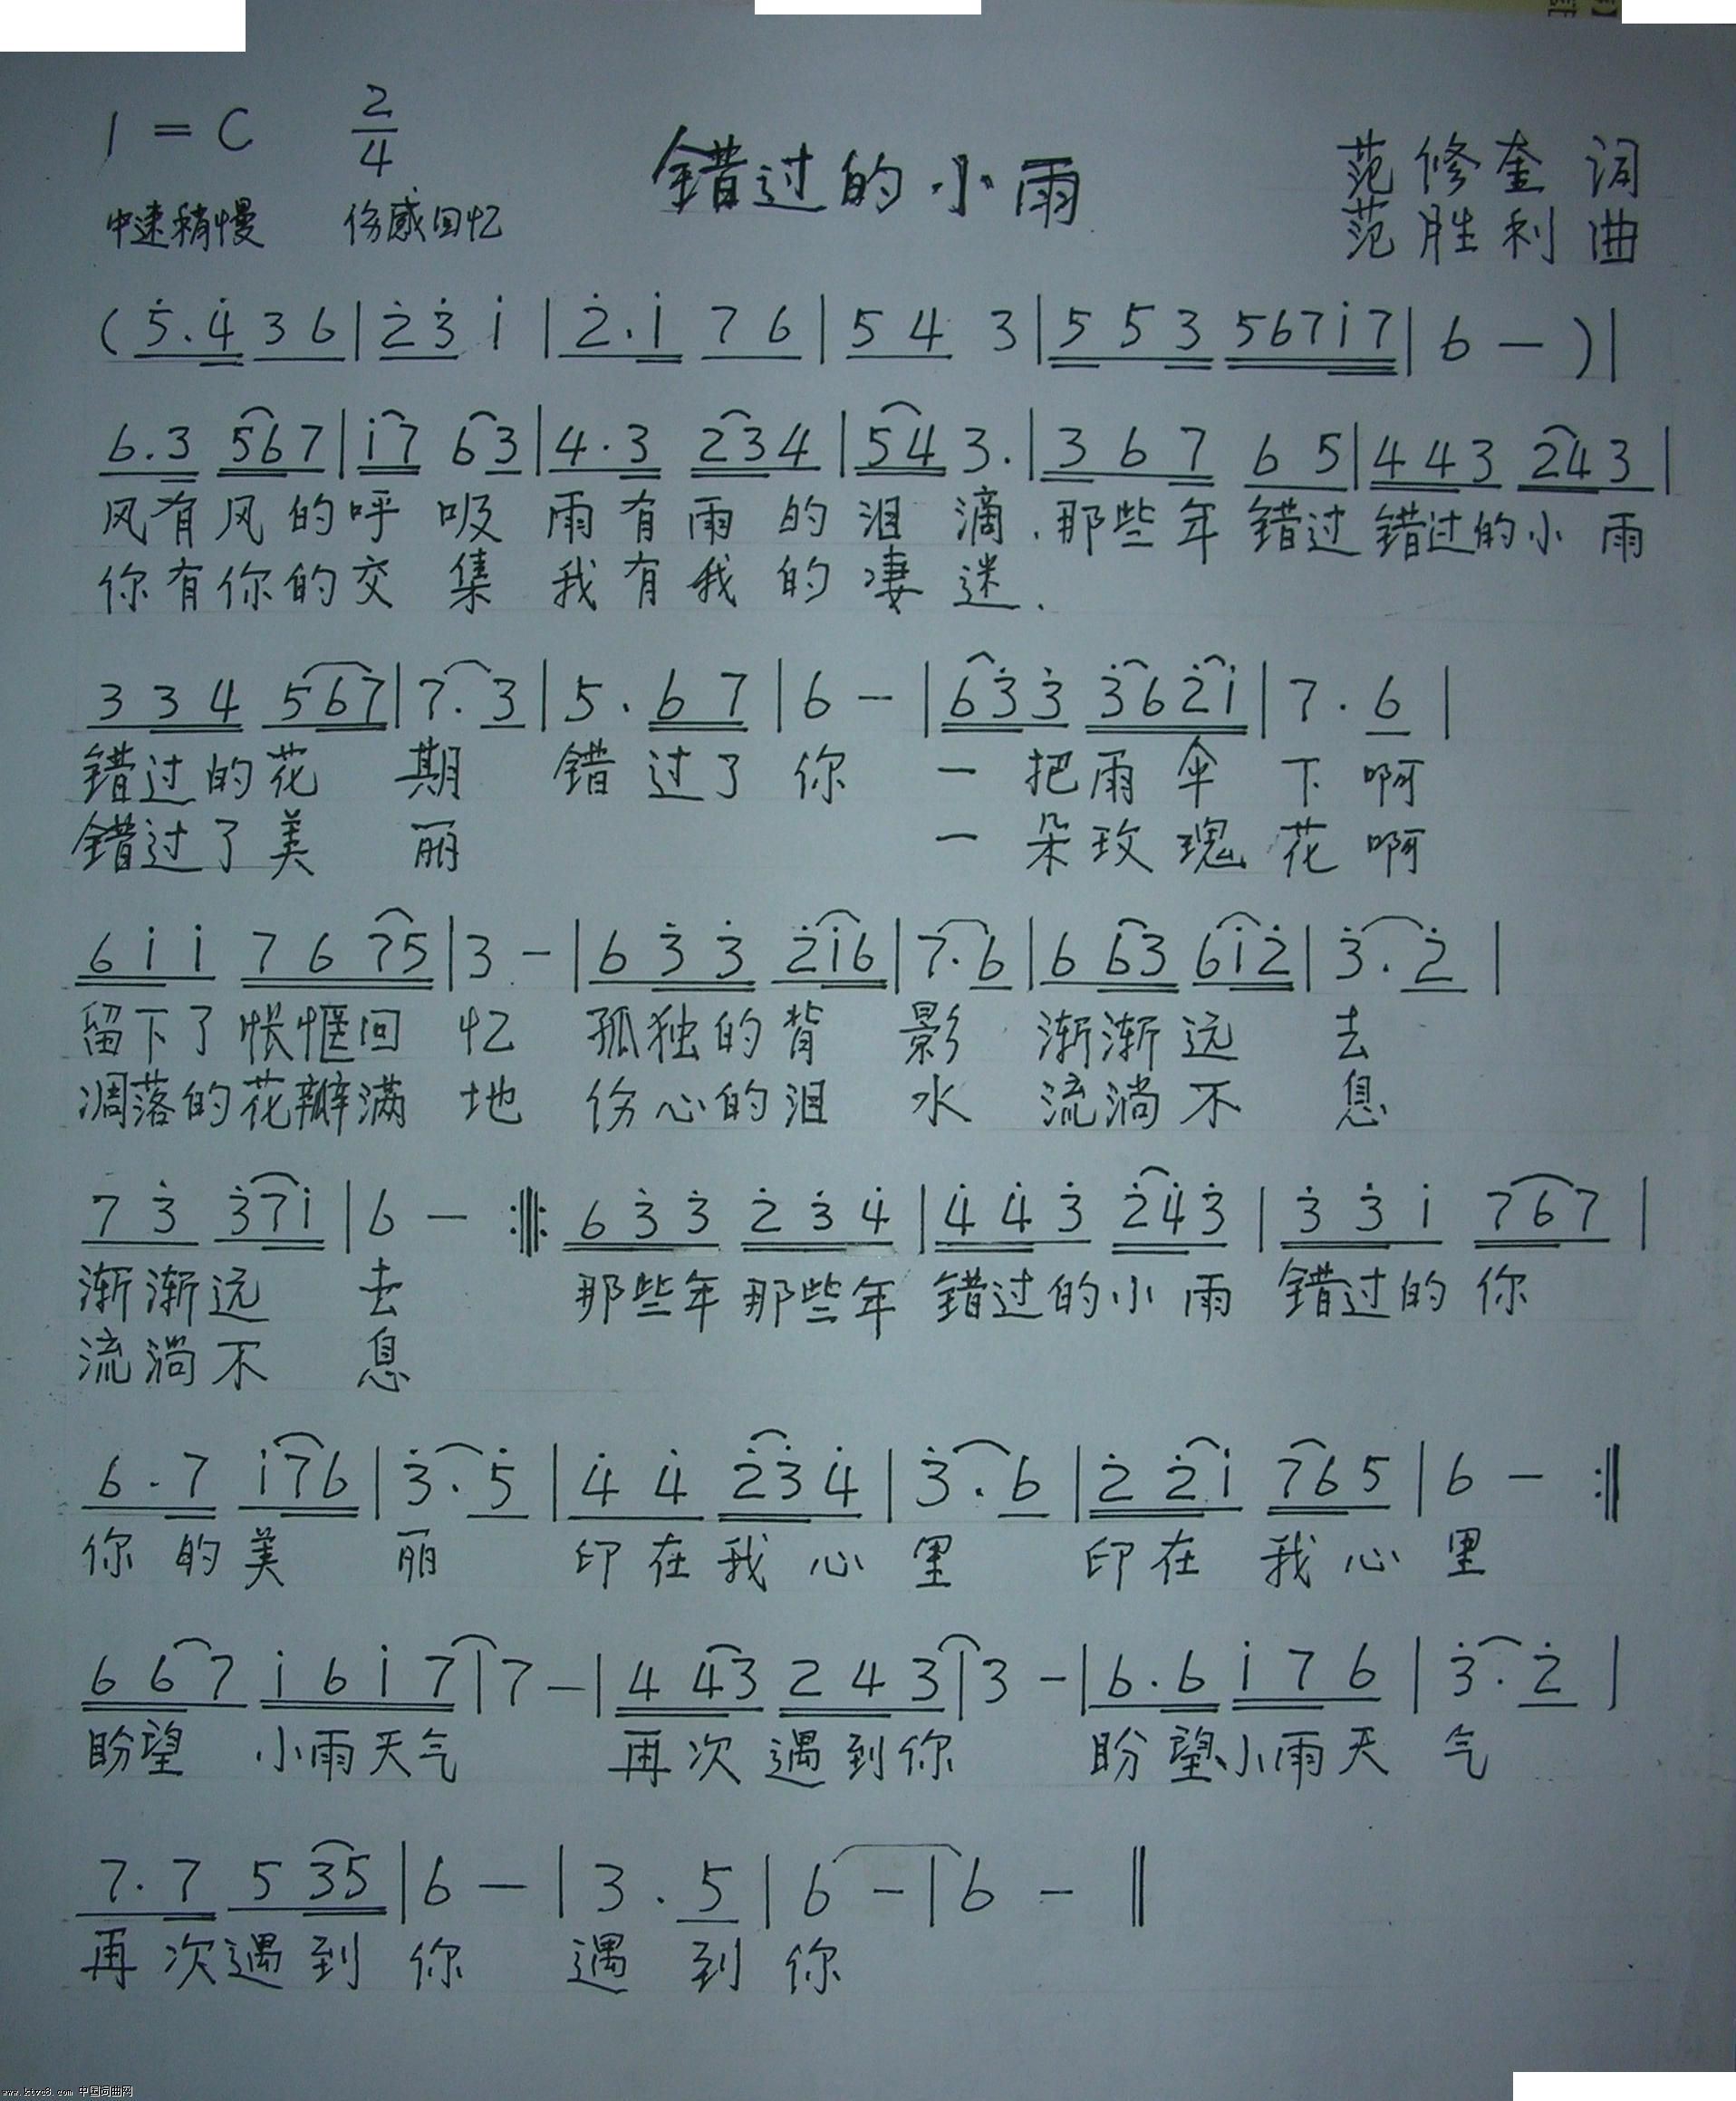 1 = C 2/4
错过的小雨
范修奎 词
中速稍慢 伤感回忆
范胜利 曲
(5̇.4̇ 3 6|2̇3̇ i|2̇.i 7 6|5 4 3|5 5 3 567i7|6 —)|
6.3 567|i7 63|4.3 234|54 3.|3 6 7 6 5|443 243|
风有风的呼吸 雨有雨的泪滴.那些年错过错过的小雨
你有你的交集 我有我的凄迷.
3 3 4 567|7. 3|5. 6 7|6 —|63̇3̇ 3̇62̇i|7. 6|
错过的花期 错过了你 一把雨伞下啊
错过了美丽 一朵玫瑰花啊
6 i i 7 6 75|3 —|6 3̇ 3̇ 2̇i6|7.6|6 63 6i2̇|3̇. 2̇|
留下了怅惬回忆 孤独的背影 渐渐远去
凋落的花瓣满地 伤心的泪水 流淌不息
7 3̇ 3̇7i|6 — :‖: 6 3̇ 3̇ 2̇ 3̇ 4̇|4̇ 4̇ 3̇ 2̇4̇3̇|3̇ 3̇ i 767|
渐渐远去 那些年那些年 错过的小雨 错过的你
流淌不息
6.7 i76|3̇. 5̇|4̇ 4̇ 2̇3̇4̇|3̇. 6|2̇ 2̇i 765|6 — :‖
你的美丽 印在我心里 印在我心里
6 67 i6i7|7 —|4 43 243|3 —|6.6 i76|3̇. 2̇|
盼望 小雨天气 再次遇到你 盼望小雨天气
7.7 5 35|6 —|3. 5|6 —|6 — ‖
再次遇到你 遇到你
www.ktvc8.com 中国词曲网